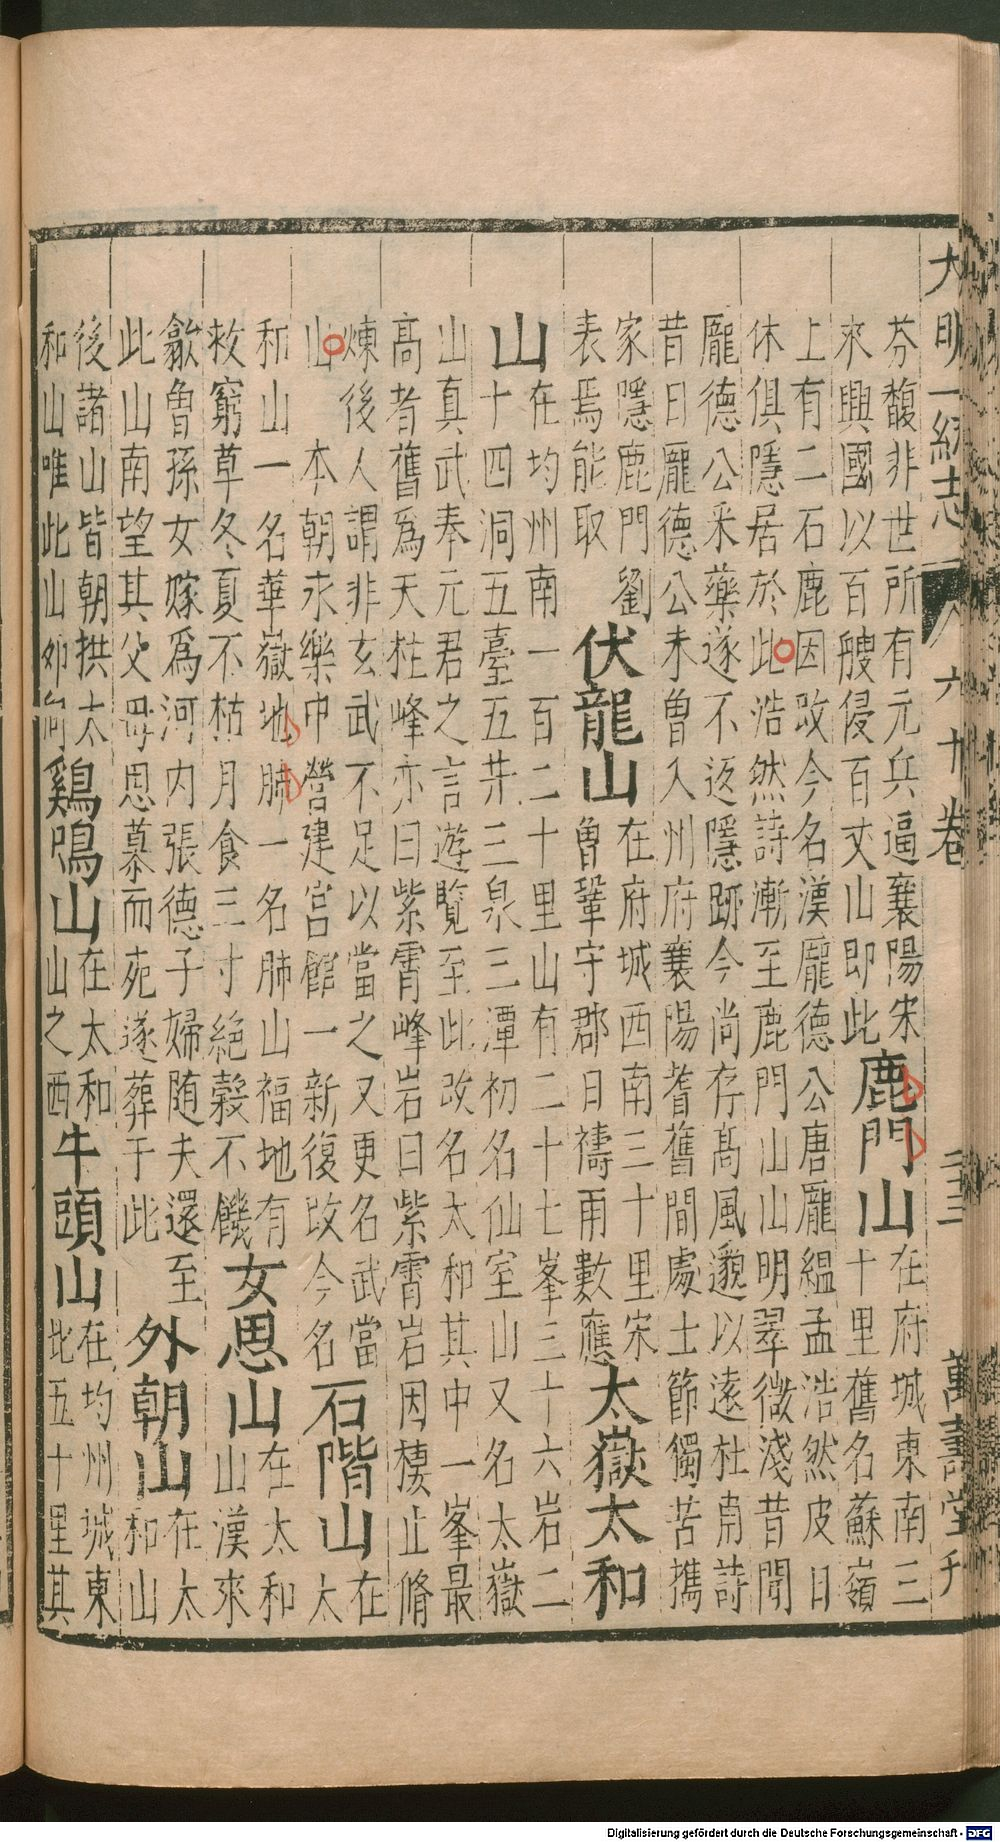 大明一統志 六十卷 二十三 萬壽堂刋
芬馥非世所有元兵逼襄陽宋
來興國以百艘侵百丈山即此
鹿門山
在府城東南三
十里舊名蘇嶺
上有二石鹿因改今名漢龐德公唐龐緼孟浩然皮日
休俱隱居於此浩然詩漸至鹿門山山明翠微淺昔聞
龐德公采藥遂不返隱跡今尚存髙風邈以遠杜甫詩
昔日龐德公未曽入州府襄陽耆舊間處士節獨苦攜
家隱鹿門劉
表焉能取
伏龍山
在府城西南三十里宋
曽鞏守郡日禱雨數應
太嶽太和
山
在均州南一百二十里山有二十七峯三十六岩二
十四洞五臺五井三泉三潭初名仙室山又名太嶽
山真武奉元君之言遊覽至此改名太和其中一峯最
髙者舊爲天柱峰亦曰紫霄峰岩曰紫霄岩因棲止脩
煉後人謂非玄武不足以當之又更名武當
山 本朝永樂中營建宫館一新復改今名
石階山
在
太
和山一名華嶽地肺一名肺山福地有
救窮草冬夏不枯月食三寸絶榖不饑
女思山
在太和
山漢來
歙魯孫女嫁爲河内張德子婦随夫還至
此山南望其父母恩慕而死遂葬于此
外朝山
在太
和山
後諸山皆朝拱太
和山唯此山卯向
鷄鳴山
在太和
山之西
牛頭山
在均州城東
北五十里其
Digitalisierung gefördert durch die Deutsche Forschungsgemeinschaft - DFG